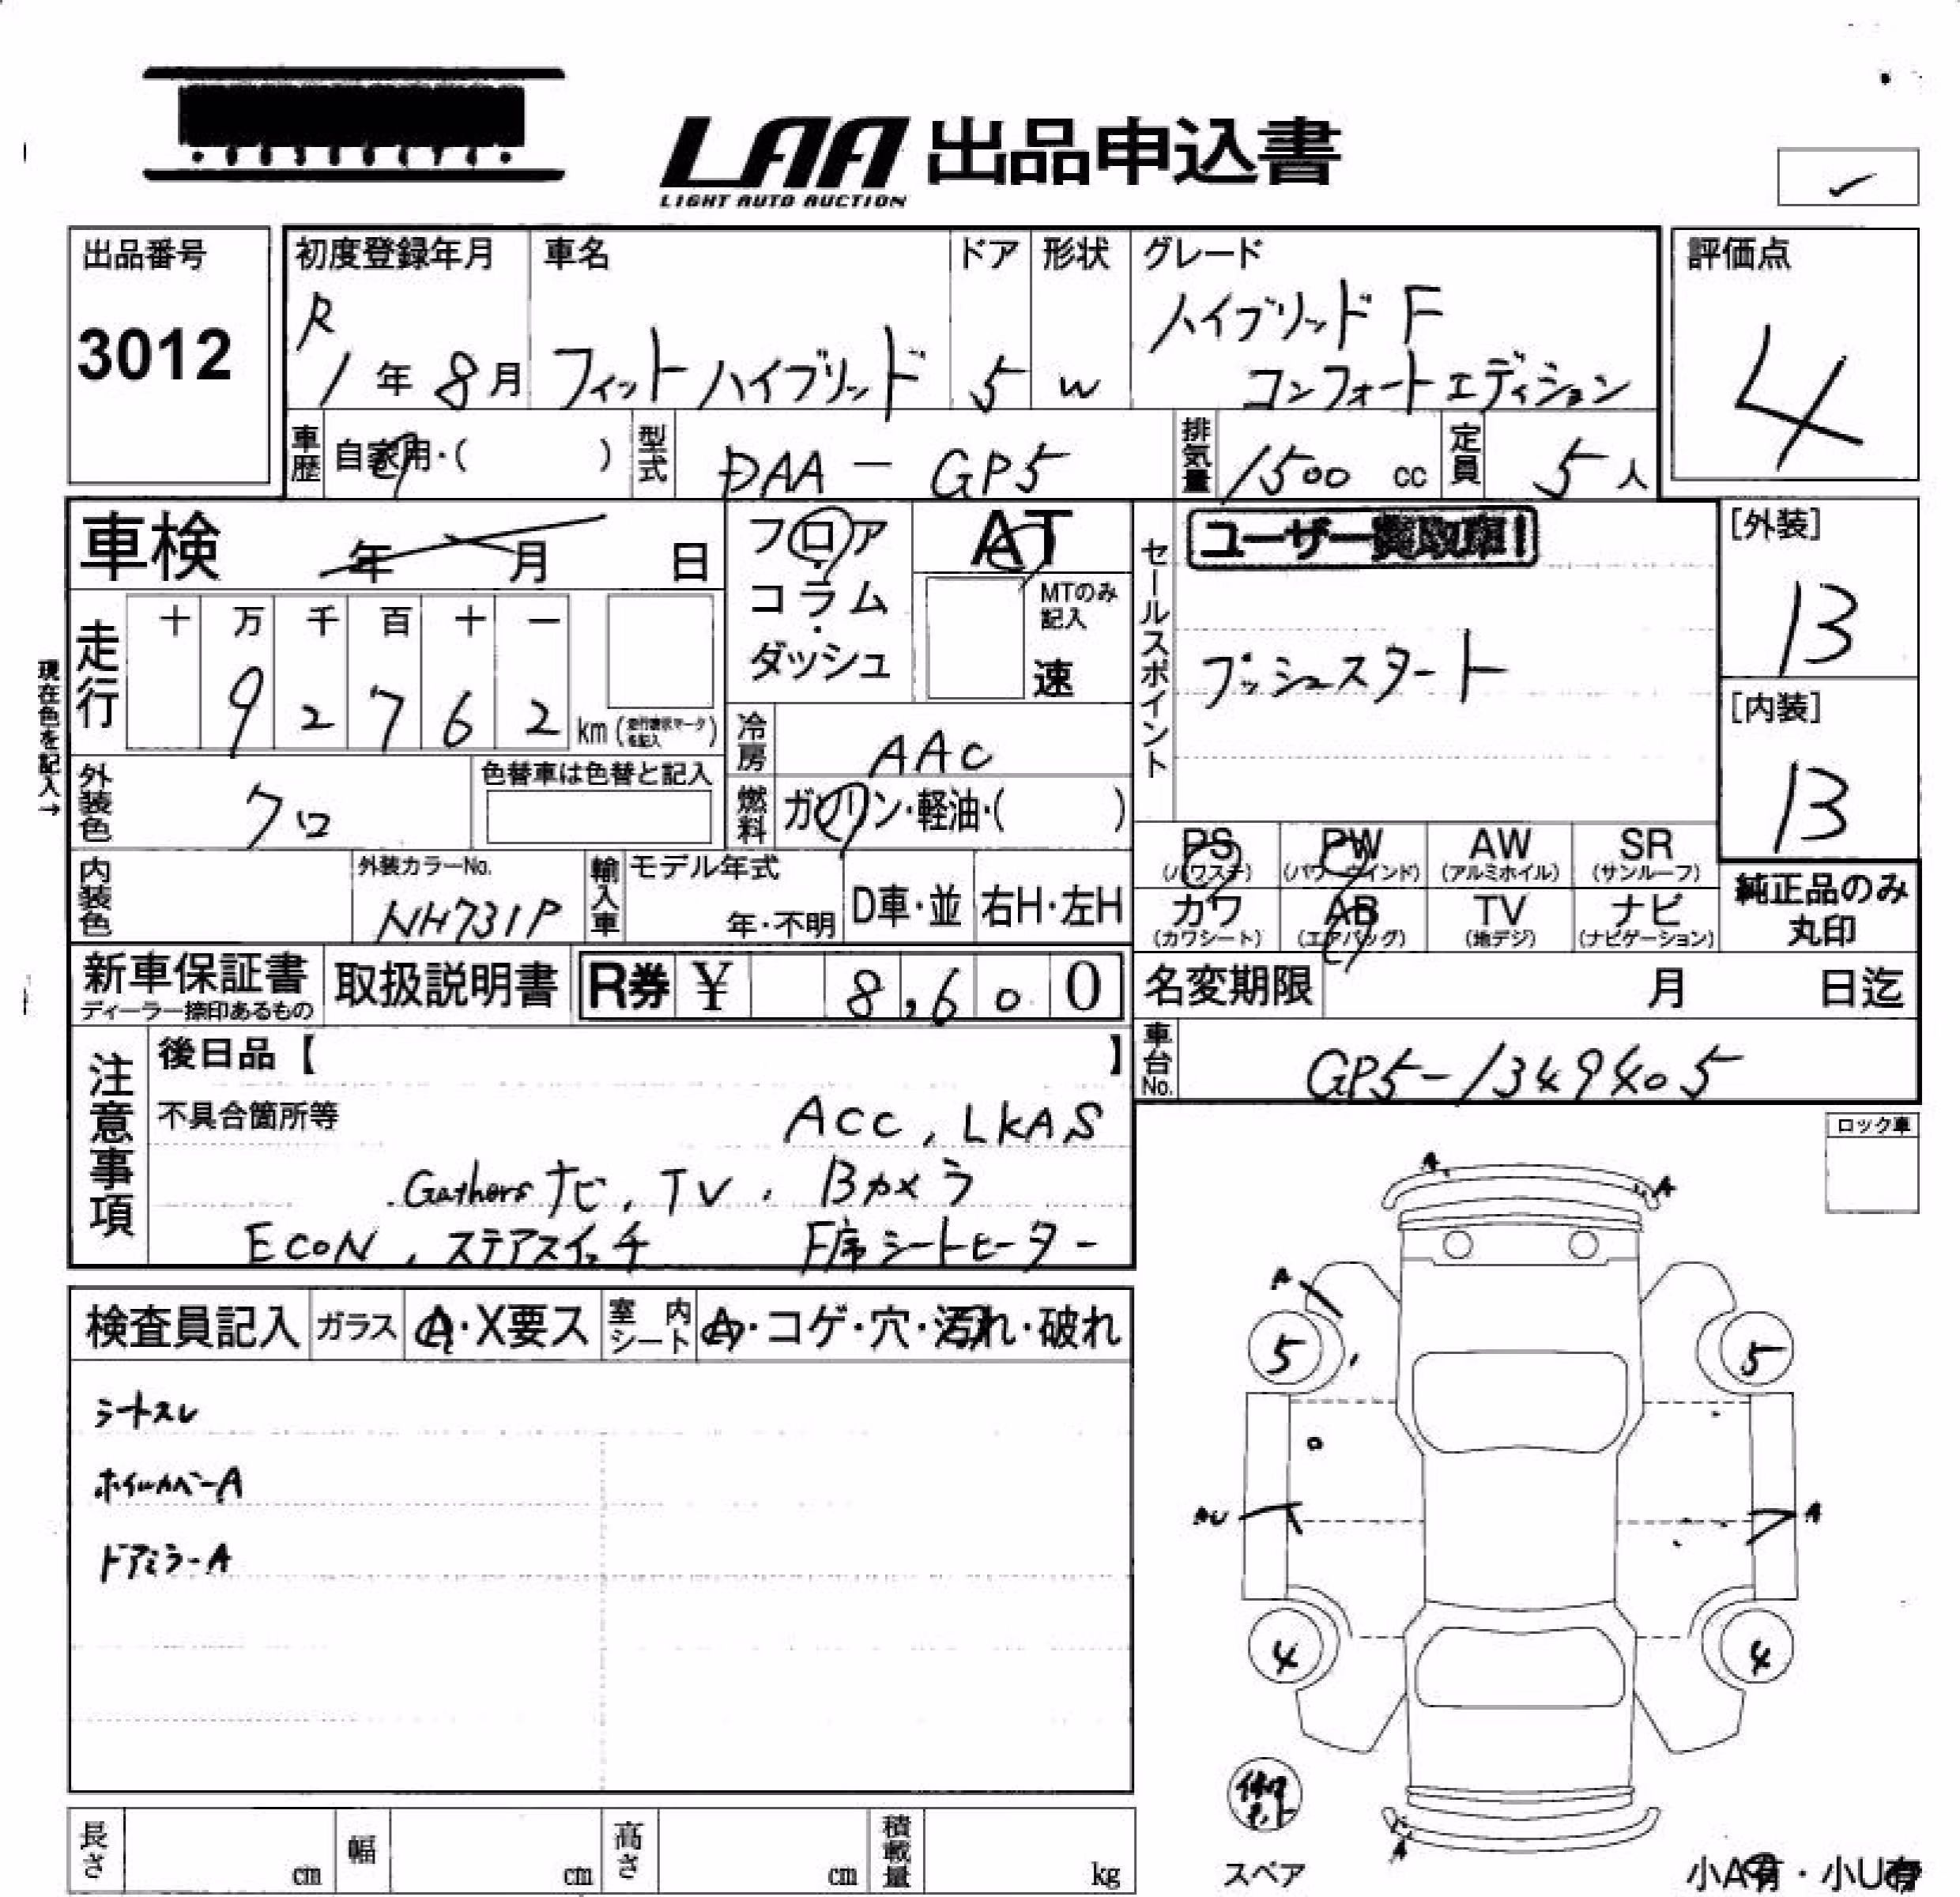 LAA 出品申込書
LIGHT AUTO AUCTION
出品番号
3012
初度登録年月
R
1年 8月
車名
フィットハイブリッド
ドア
5
形状
W
グレード
ハイブリッド F
コンフォートエディション
評価点
4
車歴 自家用・( )
型式 DAA-GP5
排気量 1500 cc
定員 5人
車検 年 月 日
フロア・コラム・ダッシュ
AT
MTのみ記入
速
セールスポイント
ユーザー買取車!
プッシュスタート
[外装]
B
[内装]
B
現在色を記入→
走行
十 万 千 百 十 一
9 2 7 6 2 km (走行表示マークを記入)
冷房 AAC
燃料 ガソリン・軽油・( )
外装色 クロ
色替車は色替と記入
内装色
外装カラーNo.
NH731P
輸入車
モデル年式
年・不明
D車・並
右H・左H
PS (パワステ)
PW (パワーウインド)
AW (アルミホイル)
SR (サンルーフ)
カワ (カワシート)
AB (エアバッグ)
TV (地デジ)
ナビ (ナビゲーション)
純正品のみ丸印
新車保証書
ディーラー捺印あるもの
取扱説明書
R券 ¥ 8,600
名変期限 月 日迄
車台No. GP5-1349405
注意事項
後日品【 】
不具合箇所等
ACC, LKAS
Gathersナビ, TV, Bカメラ
ECON, ステアスイッチ F席シートヒーター
ロック車
検査員記入 ガラス A・X要ス 室内シート A・コゲ・穴・汚れ・破れ
シートスレ
ホイルカバーA
ドアミラーA
A
A
A
5
5
AU
A
4
4
A
修理キット
スペア
小A有・小U有
長さ cm
幅 cm
高さ cm
積載量 kg